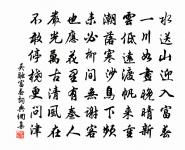 水送山迎入富春
一川如畫晚晴新
雲低遠渡帆來重
潮落寒沙鳥下頻
未必柳間無謝客
也應花裏有秦人
嚴光萬古清風在
不敢停橈更問津
吳融富春